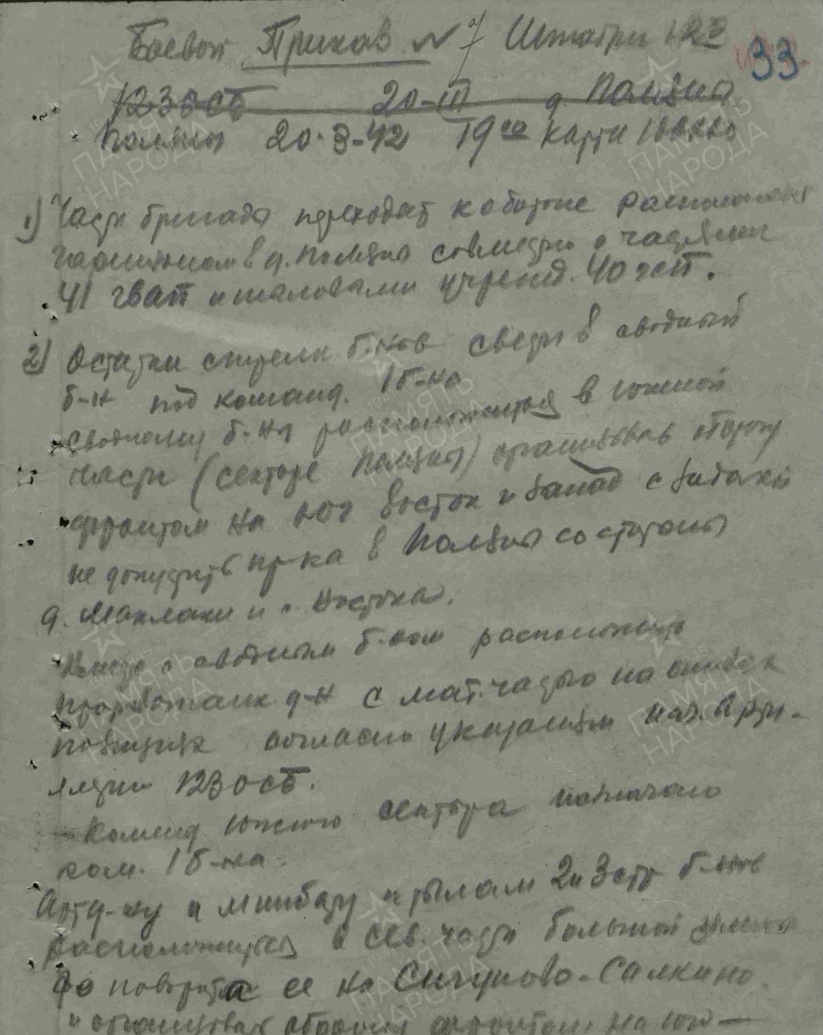 Боевой Приказ № 7 Штабри 123
33
123 осб 20-III д. Поляна
Поляна 20.3-42 19 00 карта 100000
1) Части бригады переходят к обороне
гарнизоном в д. Поляна совместно с частями
41 и тыловыми учрежд.
2) Остатки стрелк б-нов свести в сводный
б-н под команд. 1 б-на
сводному б-ну расположиться в южной
части (секторе Поляны) организовав оборону
фронтом на юг восток и запад с задачей
не допустить пр-ка в Поляна со стороны
д. Маклаки и с востока.
Вместе с сводным б-ном расположить
д-н с мат. частью на
позициях согласно указаниям нач. арти-
лерии 123 осб.
Команд южного сектора назначаю
ком. 1 б-на.
Артд-ну и минбату и тылам 2 и 3 стр б-нов
расположиться в сев. части большой
до поворота ее на Сичуново-Салкино.
и организовав оборону фронтом на юго-
ПАМЯТЬ НАРОДА